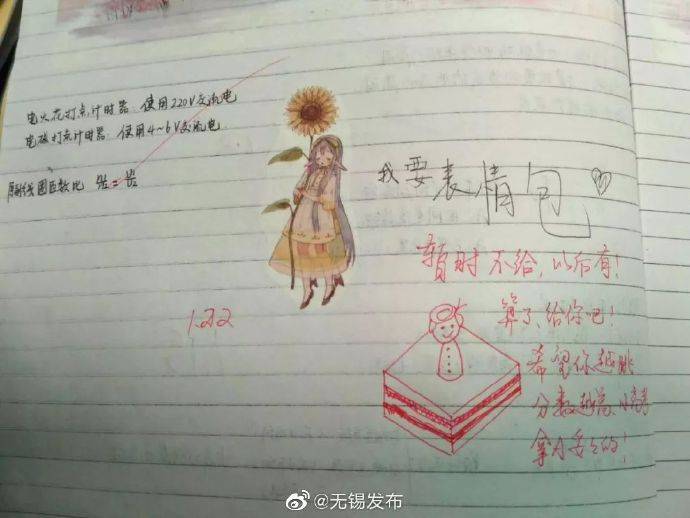 电火花打点计时器:使用220V交流电
电磁打点计时器:使用4~6V交流电
原副线圈匝数比
我要表情包
暂时不给,以后有!
算了、给你吧!
希望你越跳
分数越高、小高考
拿A妥妥的!
1.22
@无锡发布